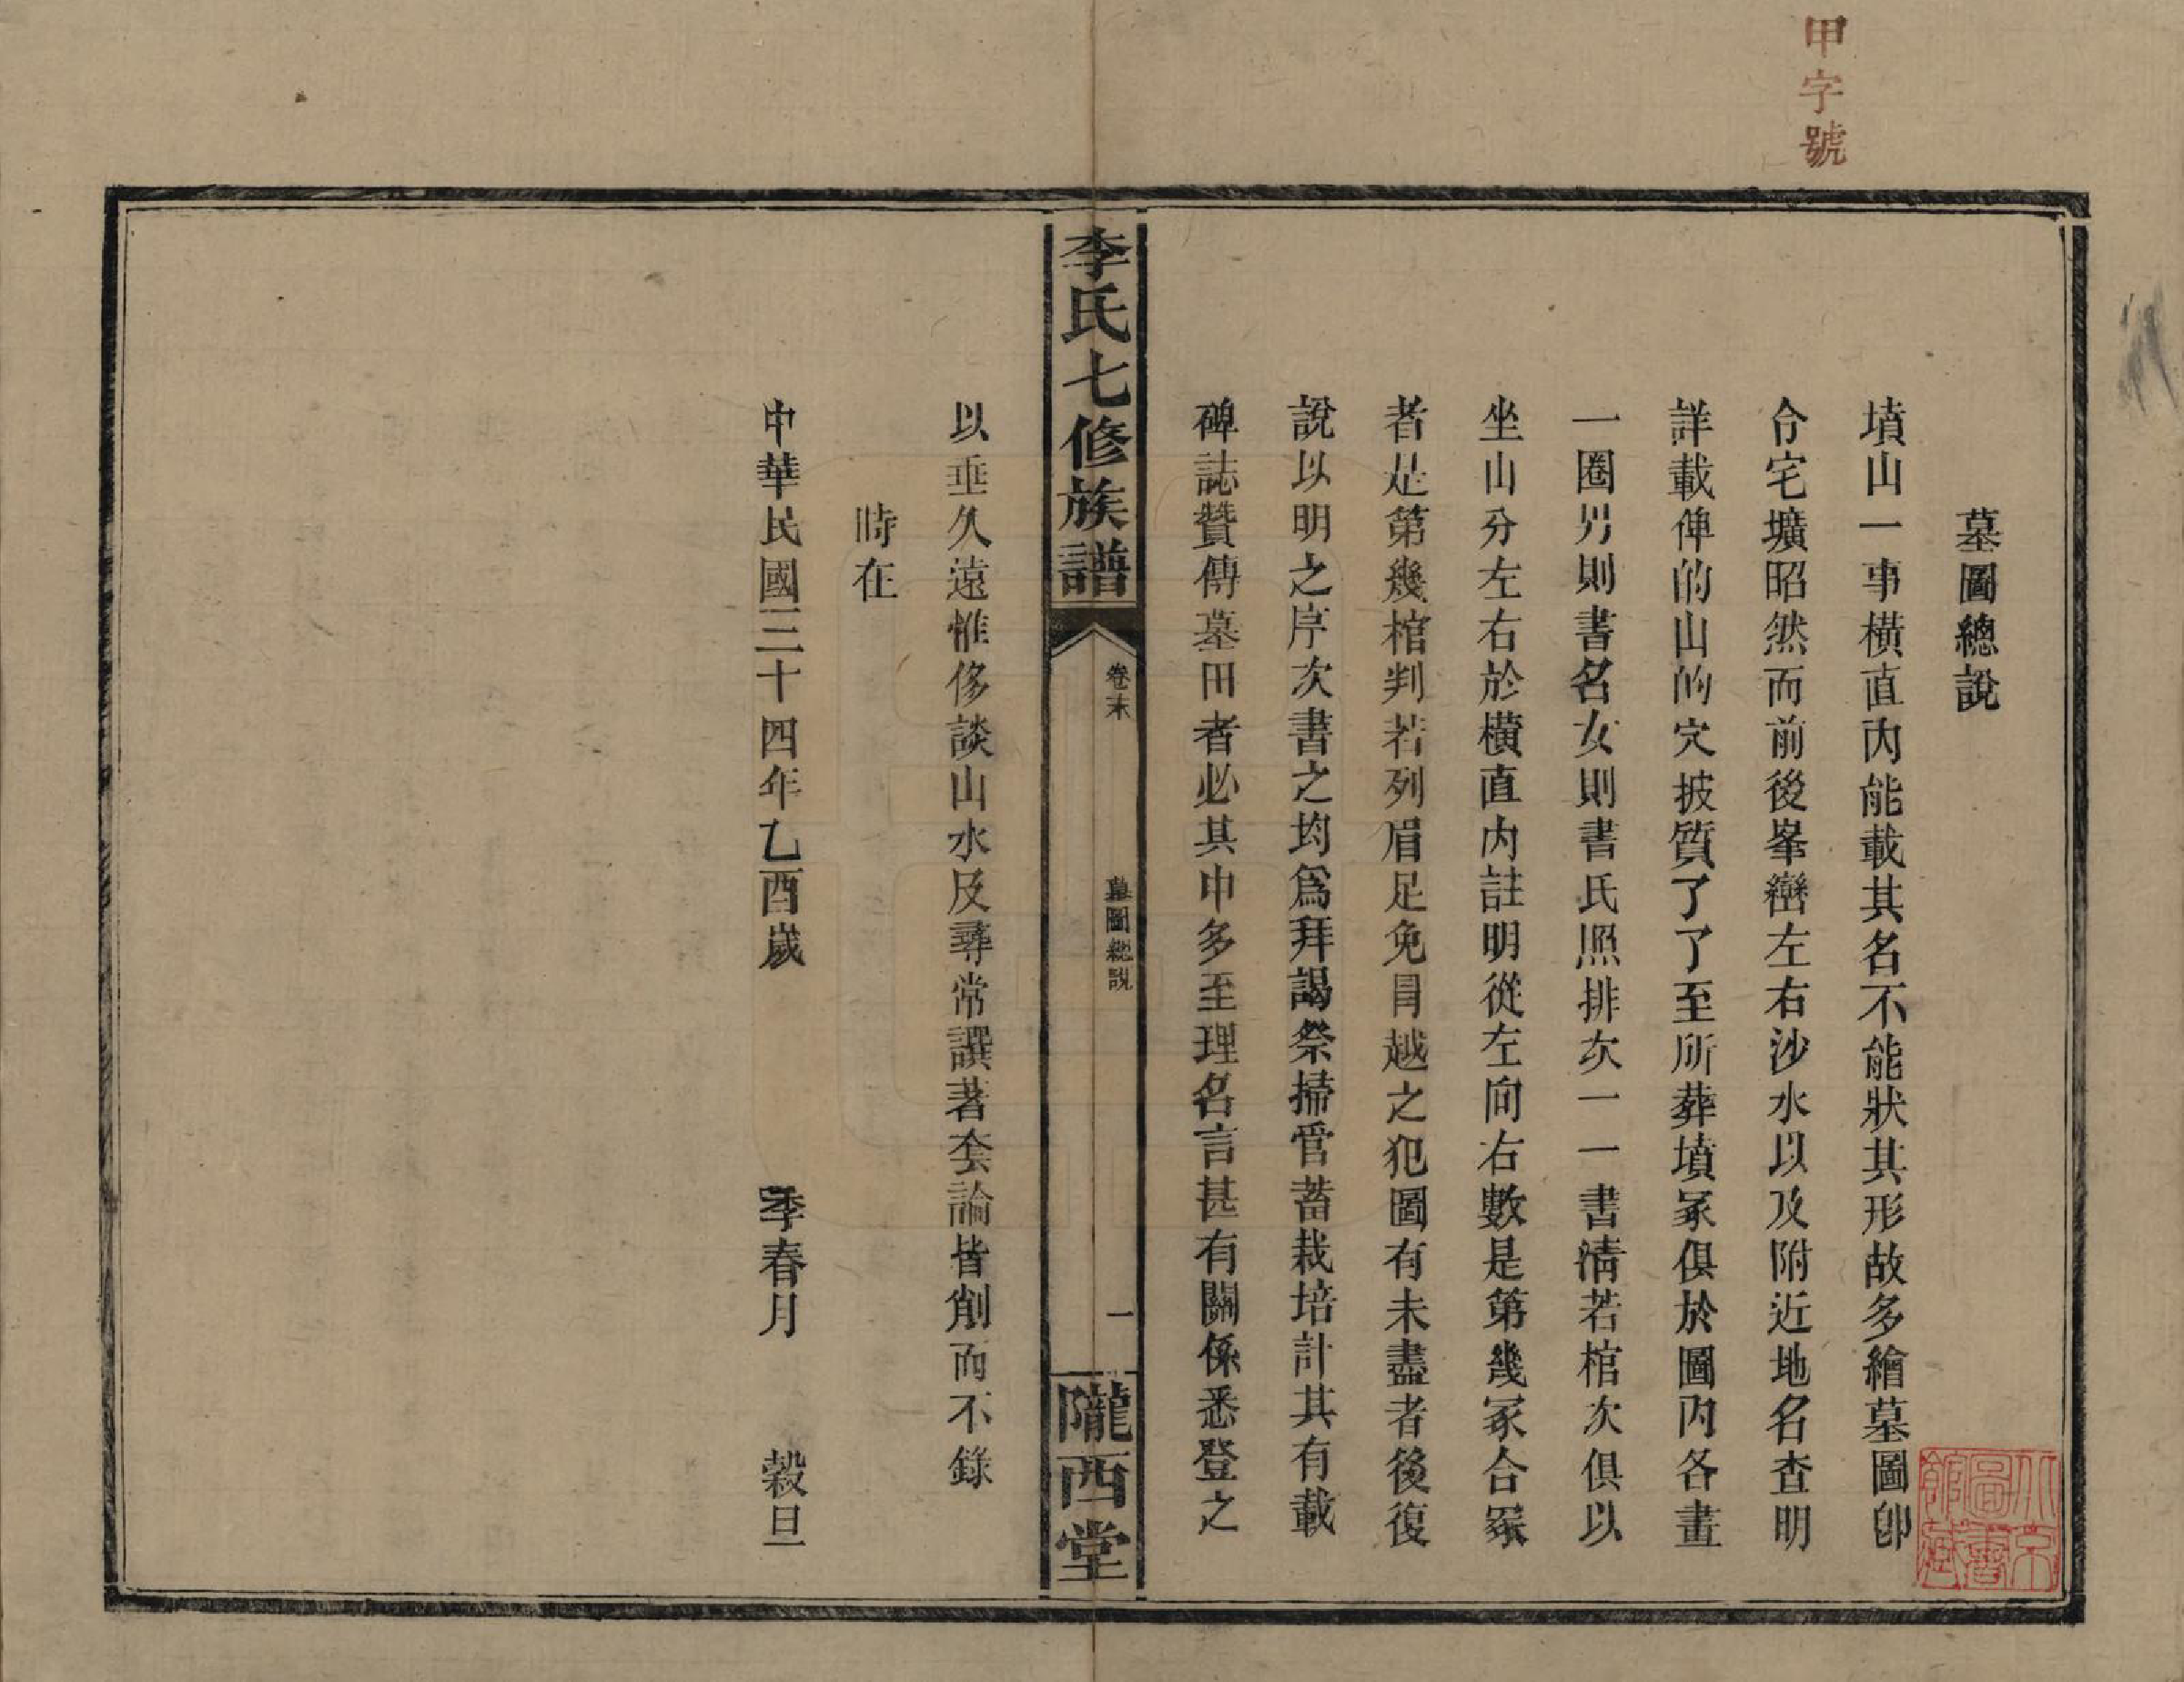 甲字號
墓圖總說
墳山一事橫直內能載其名不能狀其形故多繪墓圖卽
令宅壙昭然而前後峯巒左右沙水以及附近地名查明
詳載俾的山的穴披質了了至所葬墳冢俱於圖內各畫
一圈男則書名女則書氏照排次一一書淸若棺次俱以
坐山分左右於橫直內註明從左向右數是第幾冢合冢
者是第幾棺判若列眉足免目越之犯圖有未盡者後復
說以明之序次書之均爲拜謁祭掃管蓄栽培計其有載
碑誌贊傳墓田者必其中多至理名言甚有關係悉登之
李氏七修族譜
卷末
墓圖總說
一
隴西堂
以垂久遠惟侈談山水及尋常譔著套論皆削而不錄
時在
中華民國三十四年乙酉歲 季春月 穀旦
北京圖書館藏